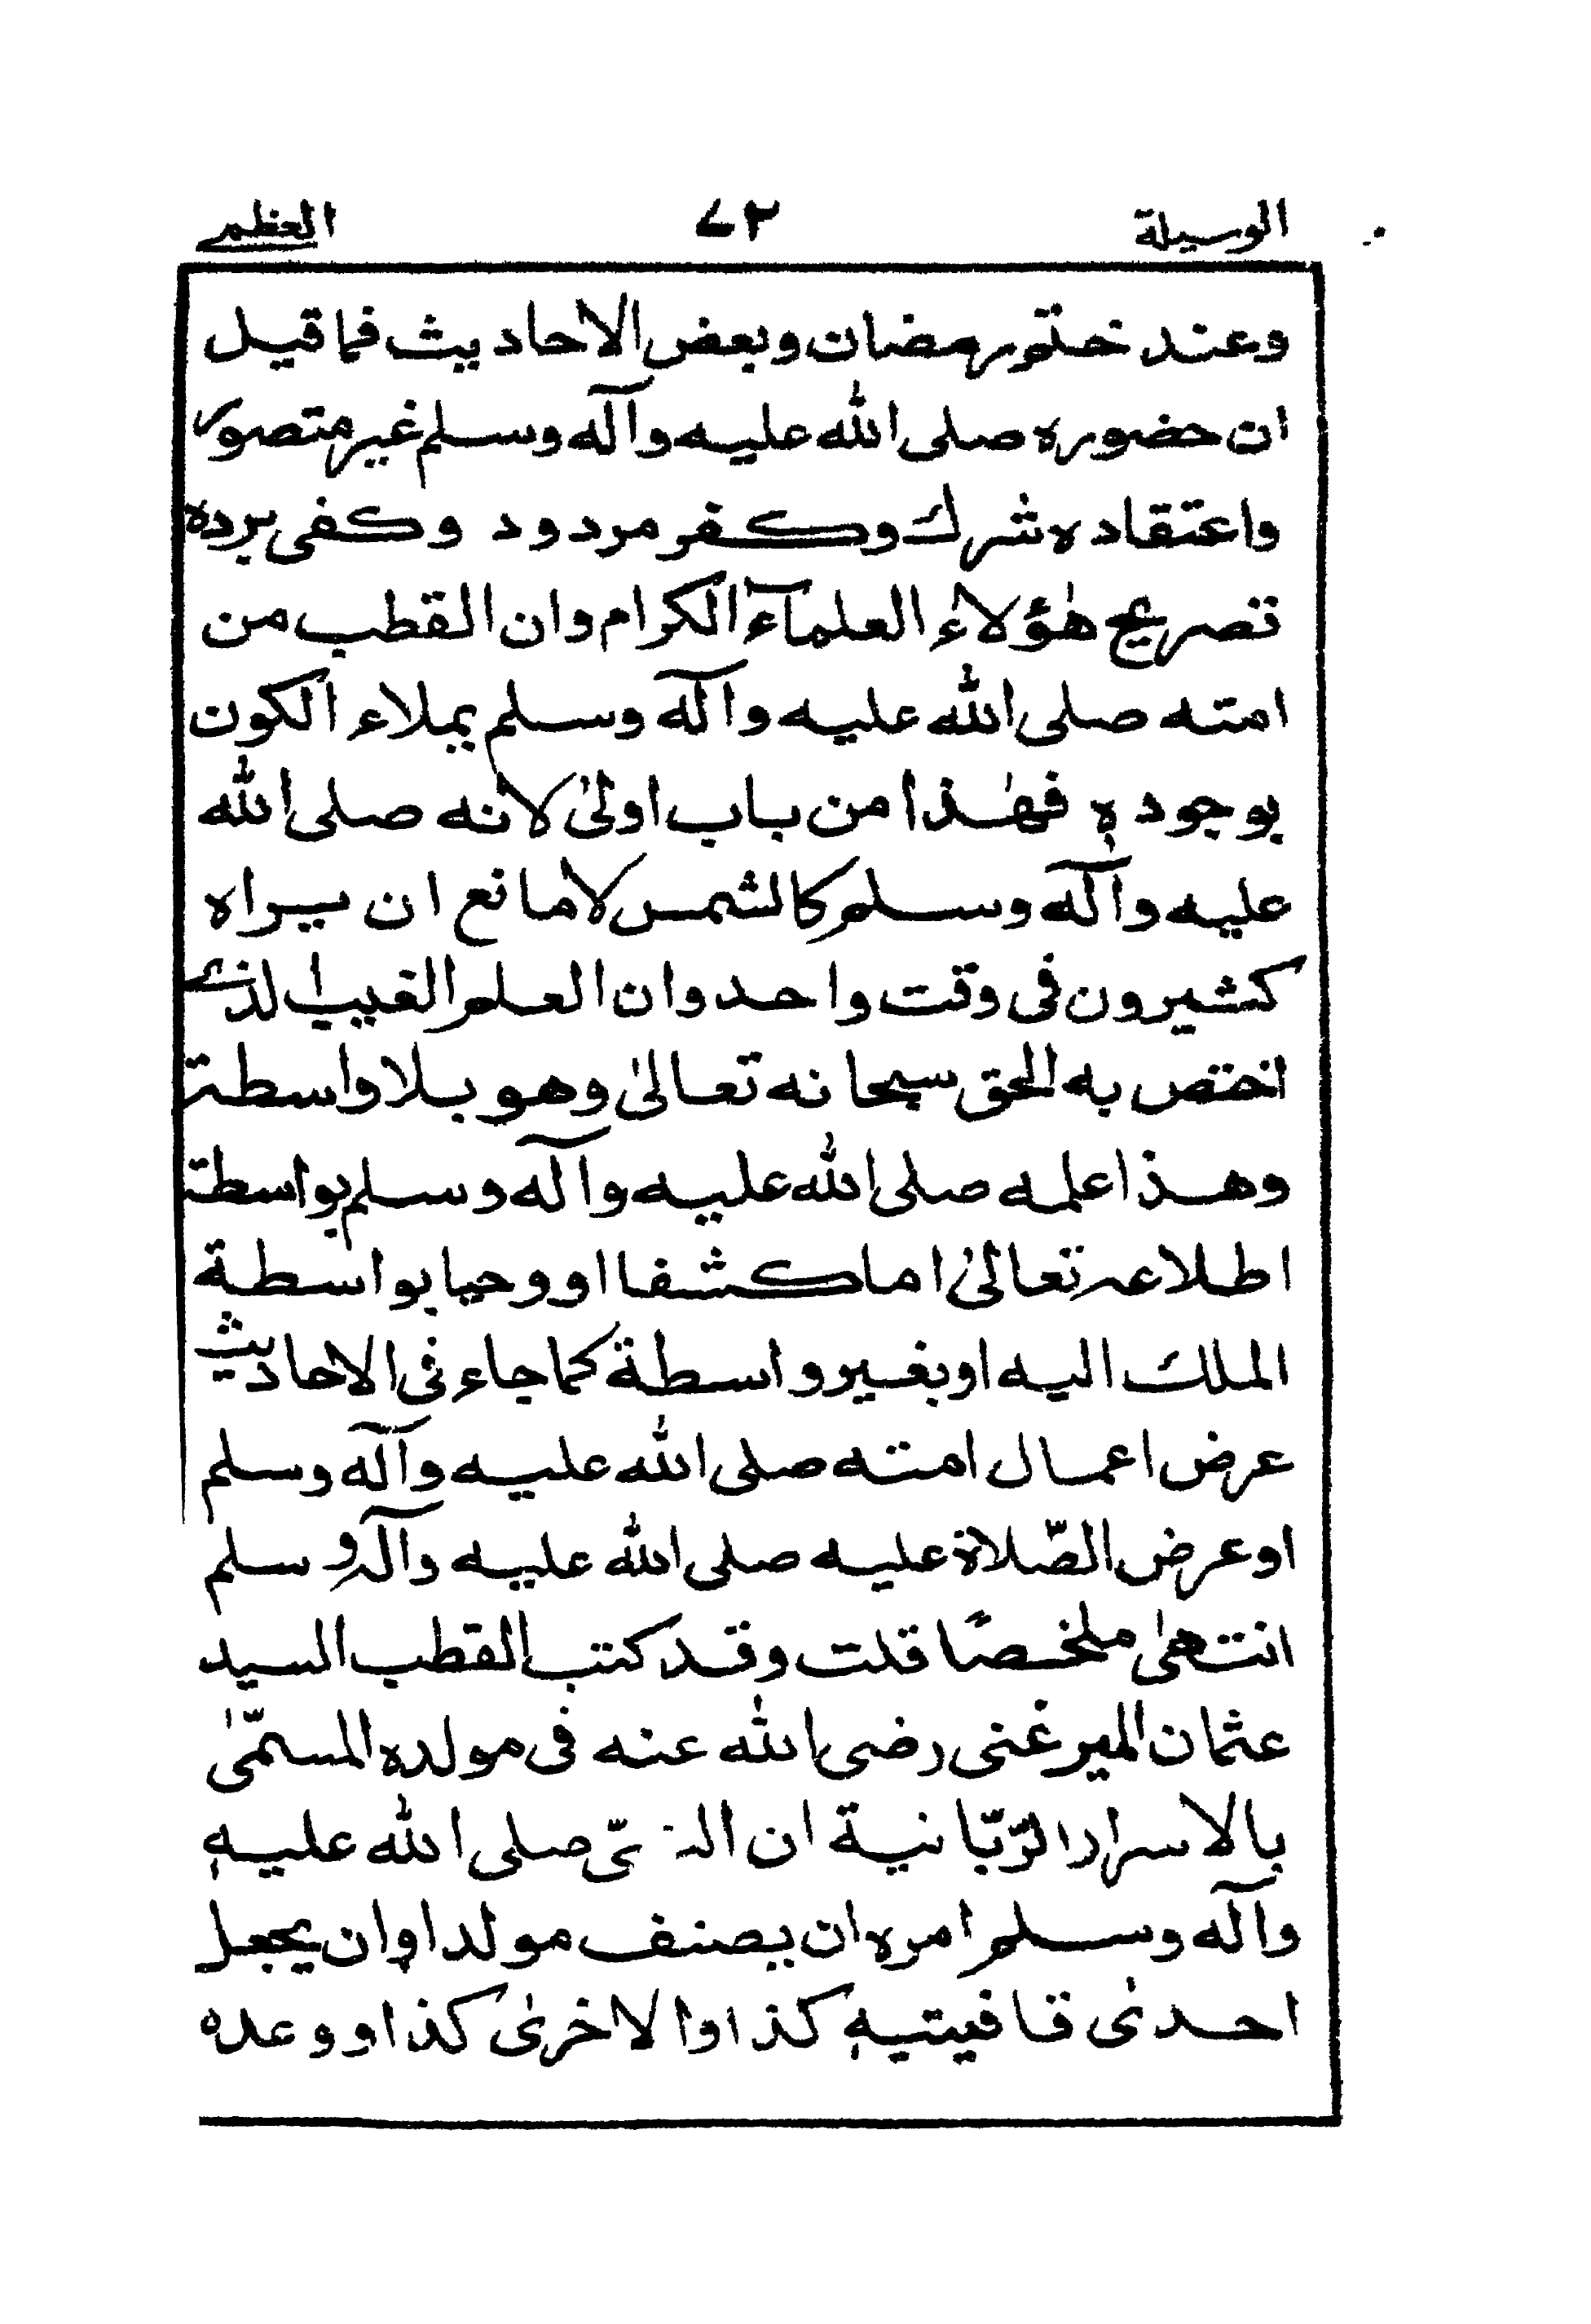 الوسيلة ٤٢ العظمے
وعند ختم رمضان وبعض الاحاديث فما قيل
ان حضوره صلى الله عليه وآله وسلم غير متصور
واعتقاده شرك وكفر مردود وكفى برده
تصريح هٰؤلاء العلمآء الكرام وان القطب من
امته صلى الله عليه وآله وسلم يملاء الكون
بوجوده فهٰذا من باب اولىٰ لانه صلى الله
عليه وآله وسلم كالشمس لا مانع ان يراه
كثيرون فى وقت واحد وان العلم الغيب الذے
اختص به الحق سبحانه تعالىٰ وهو بلا واسطة
وهذا علمه صلى الله عليه وآله وسلم بواسطة
اطلاعه تعالىٰ اما كشفا او وحيا بواسطة
الملك اليه او بغير واسطة كما جاء فى الاحاديث
عرض اعمال امته صلى الله عليه وآله وسلم
او عرض الصّلاة عليه صلى الله عليه وآله وسلم
انتهىٰ ملخصًا قلت وقد كتب القطب السيد
عثمان الميرغنى رضى الله عنه فى مولده المسمّىٰ
بالاسرار الرّبّانية ان النبىّ صلى الله عليه
وآله وسلم امره ان يصنف مولدا وان يجعل
احدىٰ قافيتيه كذا والاخرىٰ كذا ووعده